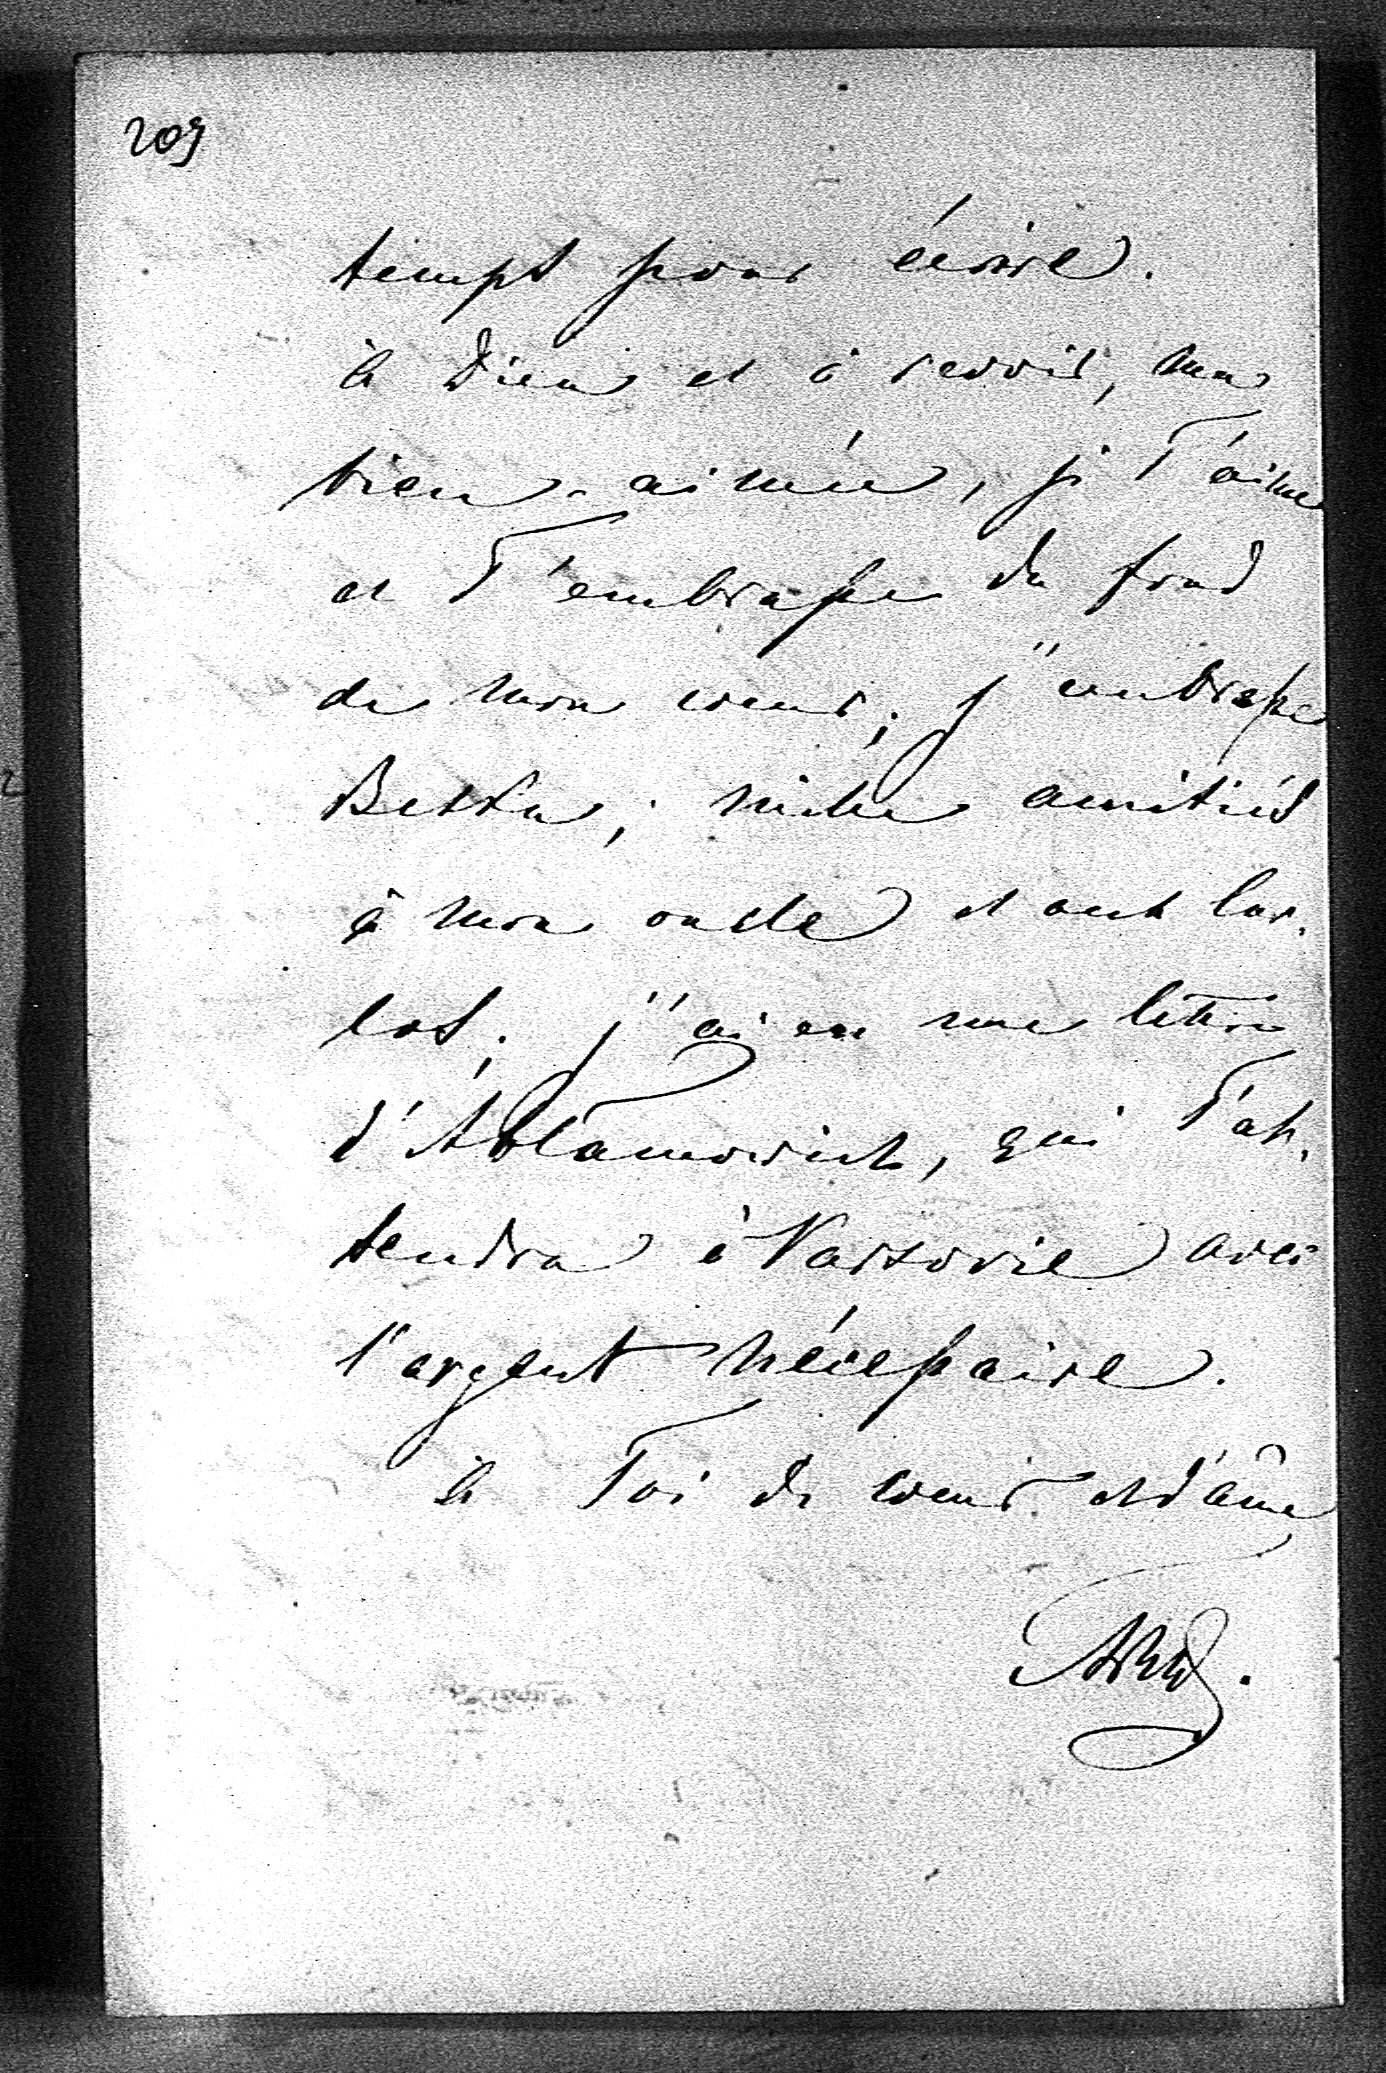 209
temps pour écrire.
à Dieu et à revoir, ma
bien-aimée, je T'aime
et T'embrasse du fond
de mon coeur; j'embrasse
Betsy; mille amitiés
à mon oncle et aux
j'ai eu une lettre
d'Ablamowicz, qui T'at-
tendra à Varsovie avec
l'argent nécessaire.
à Toi de coeur et d'âme